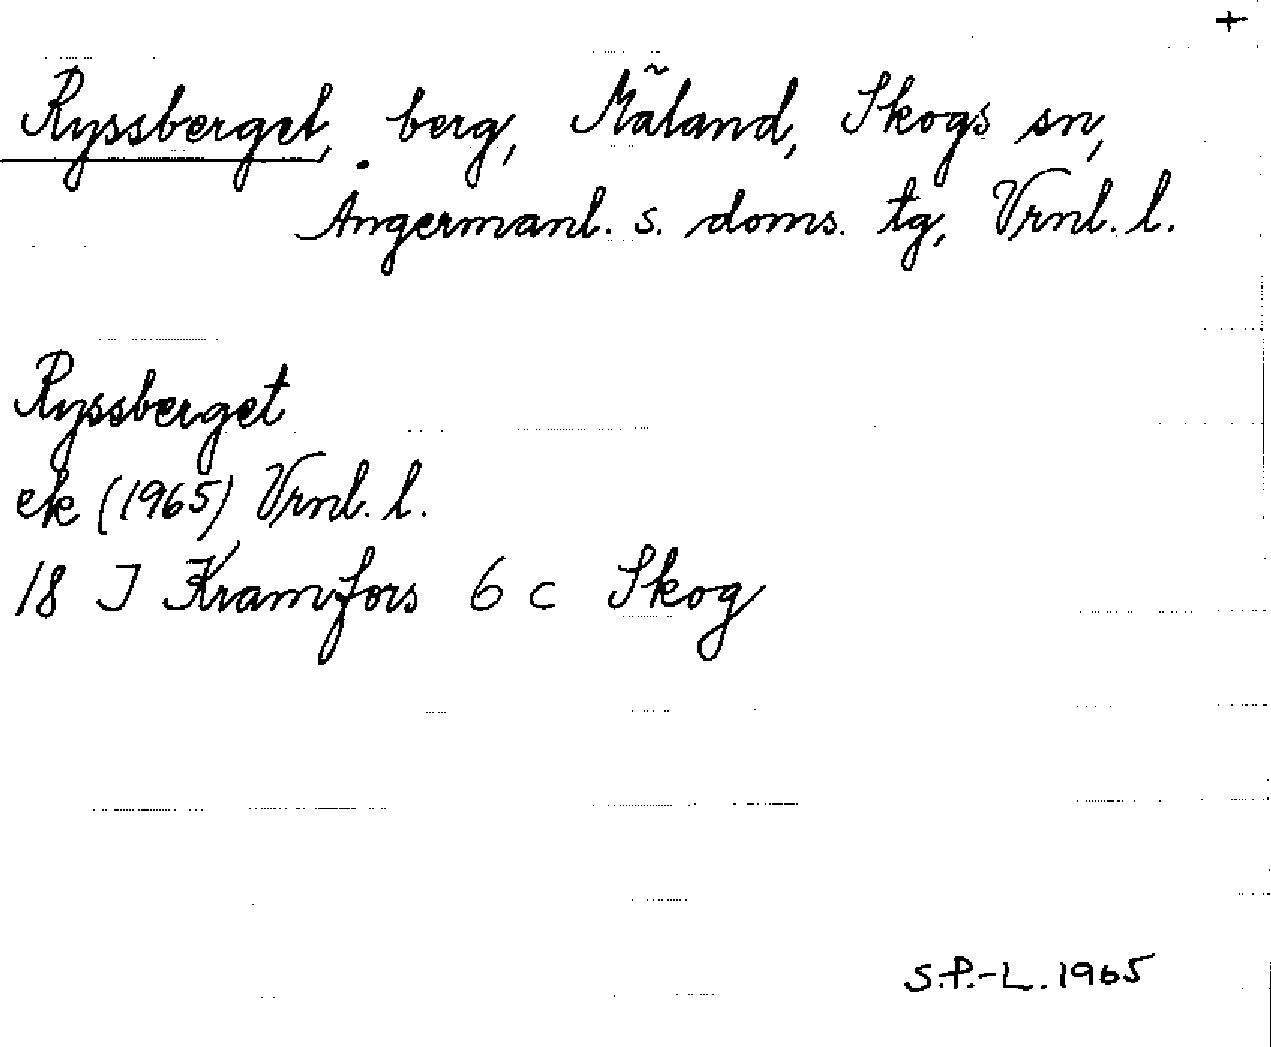 +
Ryssberget, berg, Mäland, Skogs sn,
Ångermanl. s. doms. tg, Vrnl. l.
Ryssberget
ek (1965) Vrnl. l.
18 J Kramfors 6 c Skog
S.P.-L. 1965